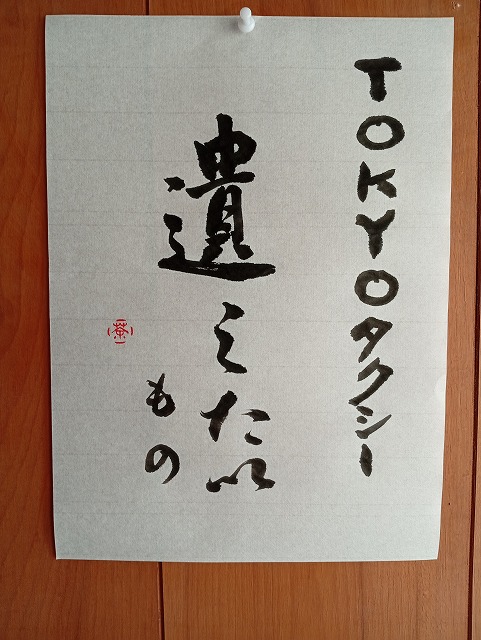 TOKYOタクシー
遺したい
もの
茶